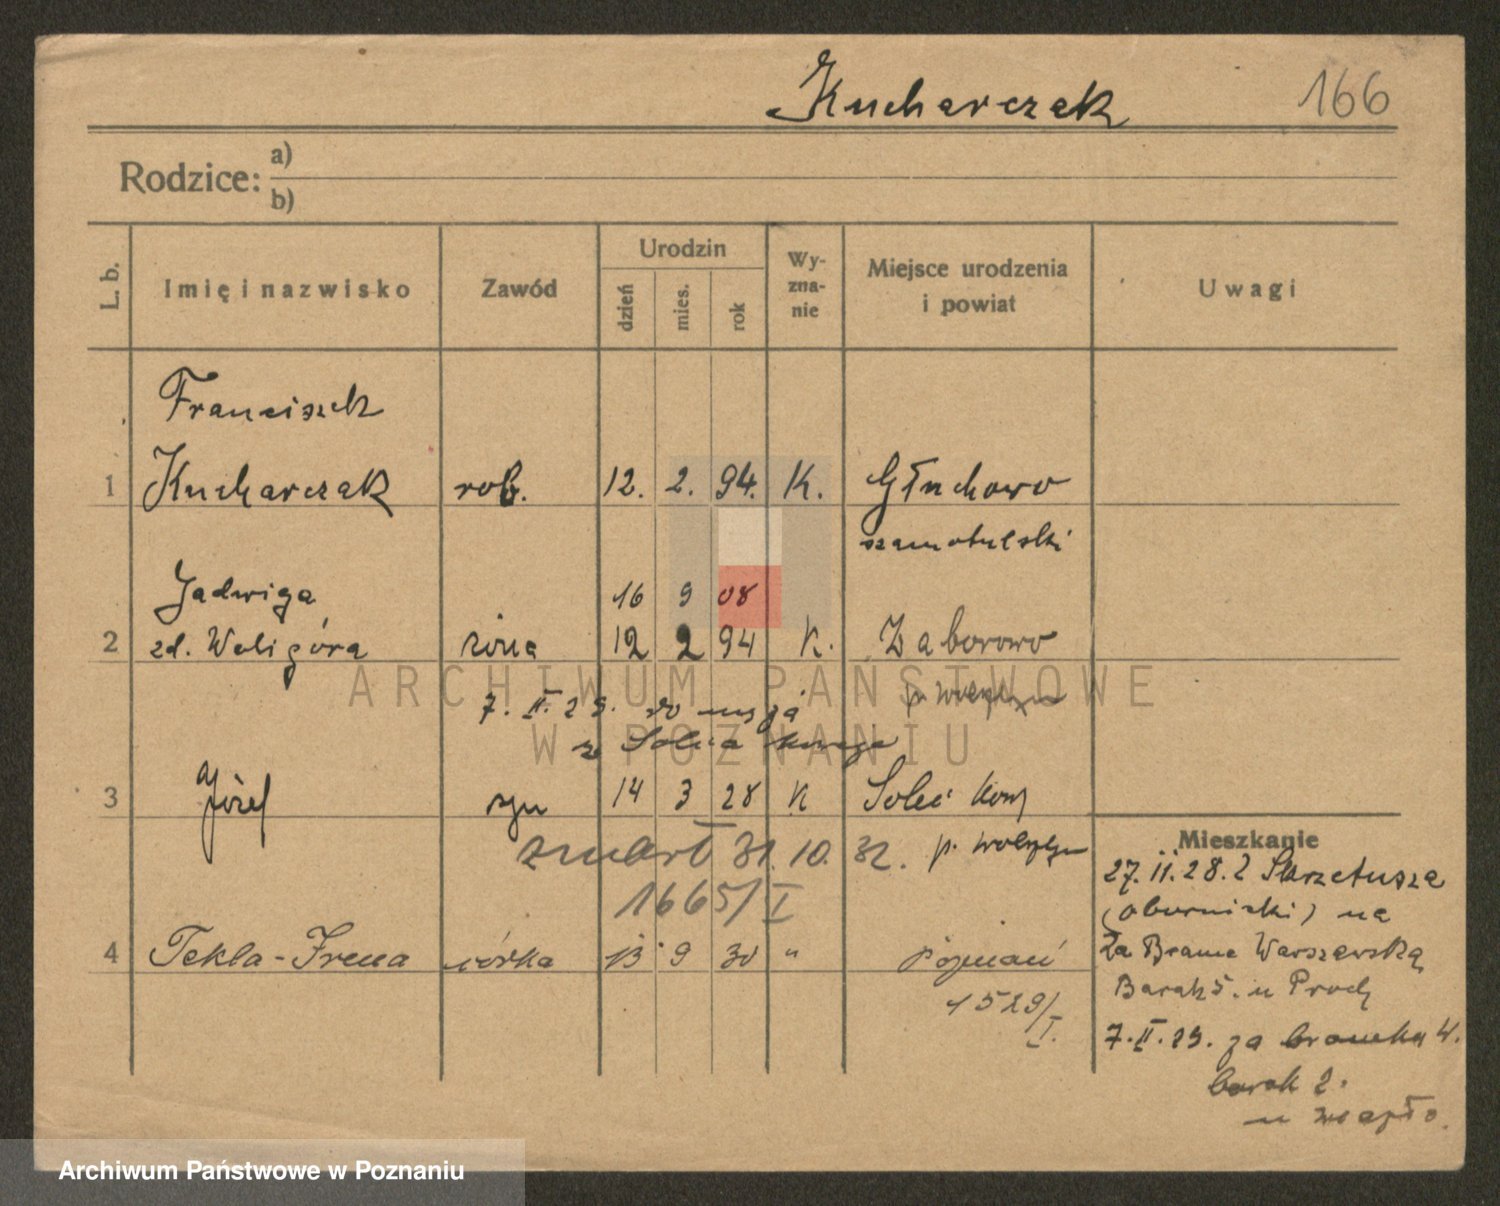 Kucharczak
166
Rodzice: a)
b)
L. b.
Imię i nazwisko
Zawód
Urodzin
dzień
mies.
rok
Wy-
zna-
nie
Miejsce urodzenia
i powiat
Uwagi
Franciszek
1 Kucharczak rob. 12. 2. 94. K. Głuchowo
szamotulski
Jadwiga 16 9 08
2 zd. Woligóra żona 12 2 94 K. Zaborowo
7. II. 29. do męża
z Solca
3 Józef syn 14 3 28 K Solec
zmarł 31. 10. 32.
1665/I
4 Tekla-Irena córka 13 9 30 " Poznań
1529/I.
Mieszkanie
27. II. 28. z Skrzetusza
(obornicki) na
Za Bramą Warszawską
Barak 5. u
7. II. 29. za bramką W.
barak 2.
u
ARCHIWUM PAŃSTWOWE
W POZNANIU
Archiwum Państwowe w Poznaniu